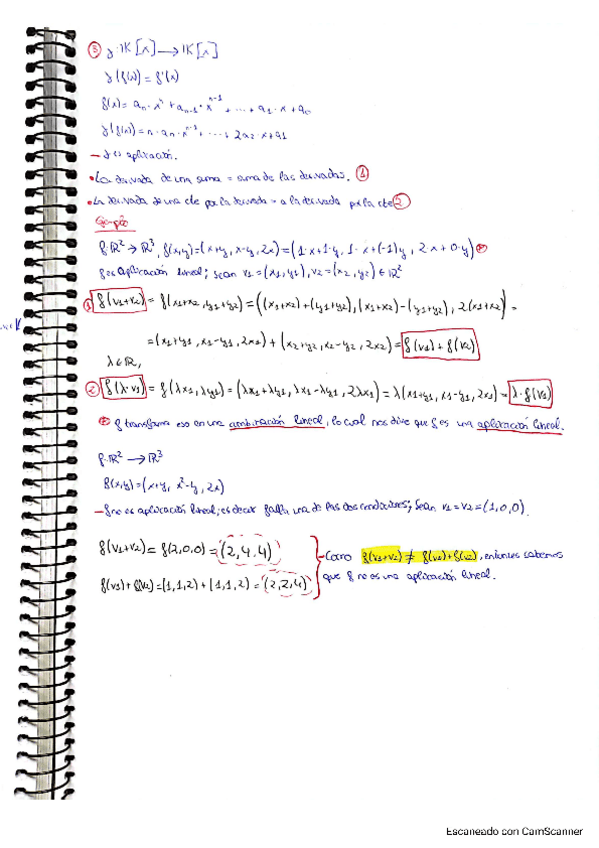 ③ γ: IK[x] → IK[x]
γ(f(x)) = f'(x)
f(x) = aₙ·xⁿ + aₙ₋₁·xⁿ⁻¹ + ... + a₁·x + a₀
γ(f(x)) = n·aₙ·xⁿ⁻¹ + ... + 2a₂·x + a₁
- γ es aplicación.
• La derivada de una suma = suma de las derivadas. ①
• La derivada de una cte por la derivada = a la derivada por la cte ②
Ejemplo
f: ℝ² → ℝ³, f(x,y) = (x+y, x-y, 2x) = (1·x+1·y, 1·x+(-1)y, 2·x+0·y) *
f es aplicación lineal; sean v₁=(x₁,y₁), v₂=(x₂,y₂) ∈ ℝ²
① f(v₁+v₂) = f(x₁+x₂, y₁+y₂) = ((x₁+x₂)+(y₁+y₂), (x₁+x₂)-(y₁+y₂), 2(x₁+x₂)) =
= (x₁+y₁, x₁-y₁, 2x₁) + (x₂+y₂, x₂-y₂, 2x₂) = f(v₁)+f(v₂)
λ ∈ ℝ,
② f(λ·v₁) = f(λx₁, λy₁) = (λx₁+λy₁, λx₁-λy₁, 2λx₁) = λ(x₁+y₁, x₁-y₁, 2x₁) = λ·f(v₁)
* f transforma eso en una combinación lineal, lo cual nos dice que f es una aplicación lineal.
f: ℝ² → ℝ³
f(x,y) = (x+y, x²-y, 2x)
- f no es aplicación lineal; es decir falla una de las dos condiciones; sean v₁=v₂=(1,0,0).
f(v₁+v₂) = f(2,0,0) = (2,4,4)
f(v₁)+f(v₂) = (1,1,2)+(1,1,2) = (2,2,4)
- Como f(v₁+v₂) ≠ f(v₁)+f(v₂), entonces sabemos
que f no es una aplicación lineal.
Escaneado con CamScanner